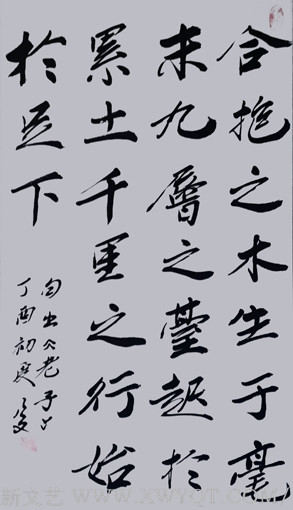 合抱之木生于毫
末九層之臺起於
累土千里之行始
於足下
句出《老子》
丁酉初夏
新文艺